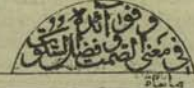 وفوائده
في معنى الصمت وفضل السكوت